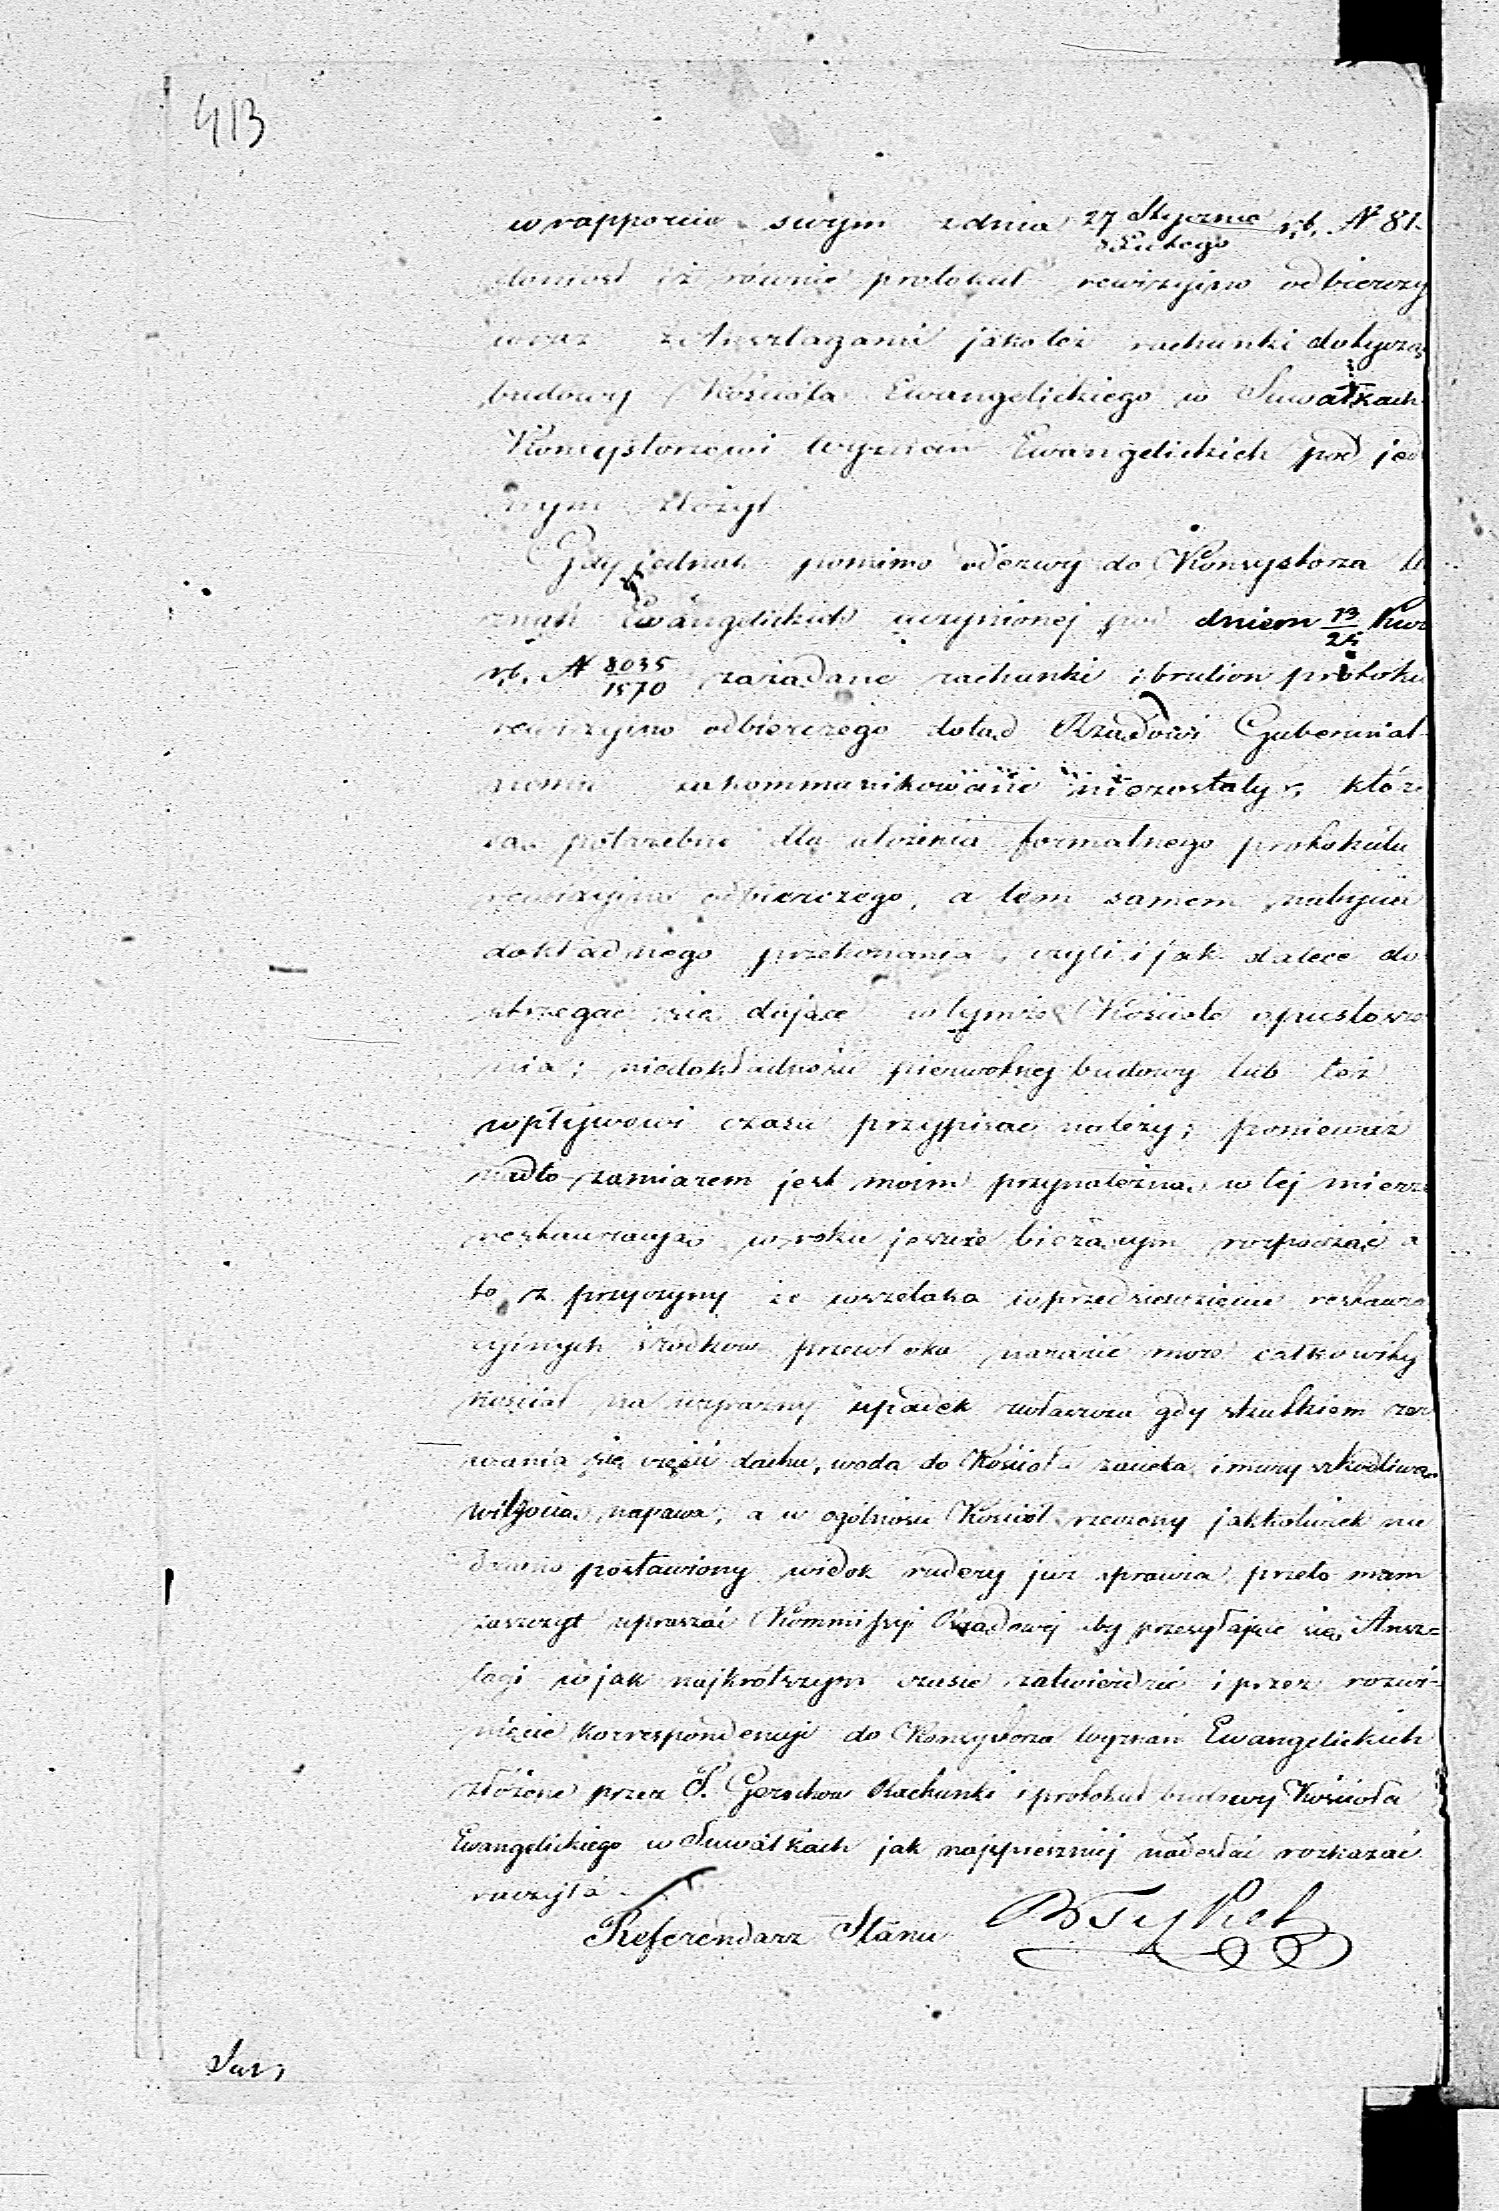 413
w rapporcie swym z dnia 27 Stycznia / 8 Lutego r.b. N 81.
doniosł iż równie protokuł rewizyjno odbierczy
wraz z Anszlagami jakoteż rachunki dotycząc
budowy Kościoła Ewangelickiego w Suwałkach
Konsystorzowi Wyznań Ewangelickich pod jed
nym złożył
Gdy jednak pomimo odezwy do Konsystorza Wy
znań Ewangelickich uczynionej pod dniem 13/25 Kwe
r.b. N 8035/1570 zażądane rachunki i brulion protoku
rewizyjno odbierczego dotąd Rządowi Gubernial-
nemu zakommunikowane niezostały, które
są potrzebne dla ułożenia formalnego protokułu
rewizyjno odbierczego, a tem samem nabycia
dokładnego przekonania, czyli i jak dalece do
strzegać się dające w tymże Kościele spustosze
nia; niedokładności pierwotnej budowy lub też
wpływowi czasu przypisać należy; ponieważ
nadto zamiarem jest moim przynależną w tej mierze
restauracyą w roku jeszcze bieżącym rozpocząć a
to z przyczyny że wszelaka w przedsięwzięciu restaura
cyjnych środków przewłoka narazić może całkowity
Kościół na wyraźny upadek zwłaszcza gdy skutkiem zer
wania się części dachu, woda do Kościoła zacieka i mury szkodliwą
wilgocią napawa, a w ogólności Kościół rzeczony jakkolwiek nie
dawno postawiony widok rudery już sprawia przeto mam
zaszczyt upraszać Kommissyi Rządowej aby przesyłające się Ansz=
lagi w jak najkrótszym czasie zatwierdzić i przez rozwi-
nięcie korrespondencyi do Konsystorza Wyznań Ewangelickich
złożone przez P. Rachunki i protokuł budowy Kościoła
Ewangelickiego w Suwałkach jak najspieszniej nadesłać rozkazać
raczyła.
Referendarz Stanu